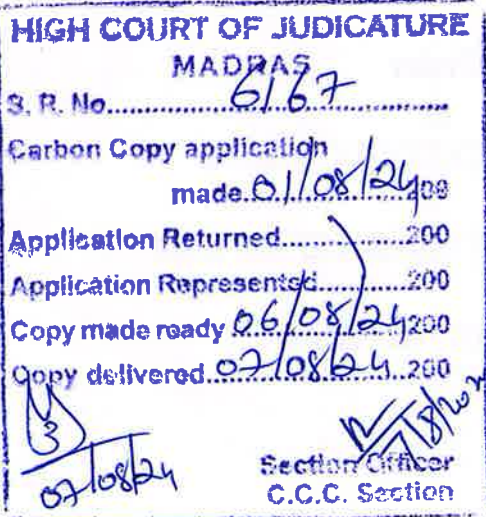 HIGH COURT OF JUDICATURE
MADRAS
S. R. No. 6167
Carbon Copy application
made 01/08/24 200
Application Returned 200
Application Represented 200
Copy made ready 06/08/24 200
Copy delivered 07/08/24 200
3
07/08/24
Section Officer
C.C.C. Section